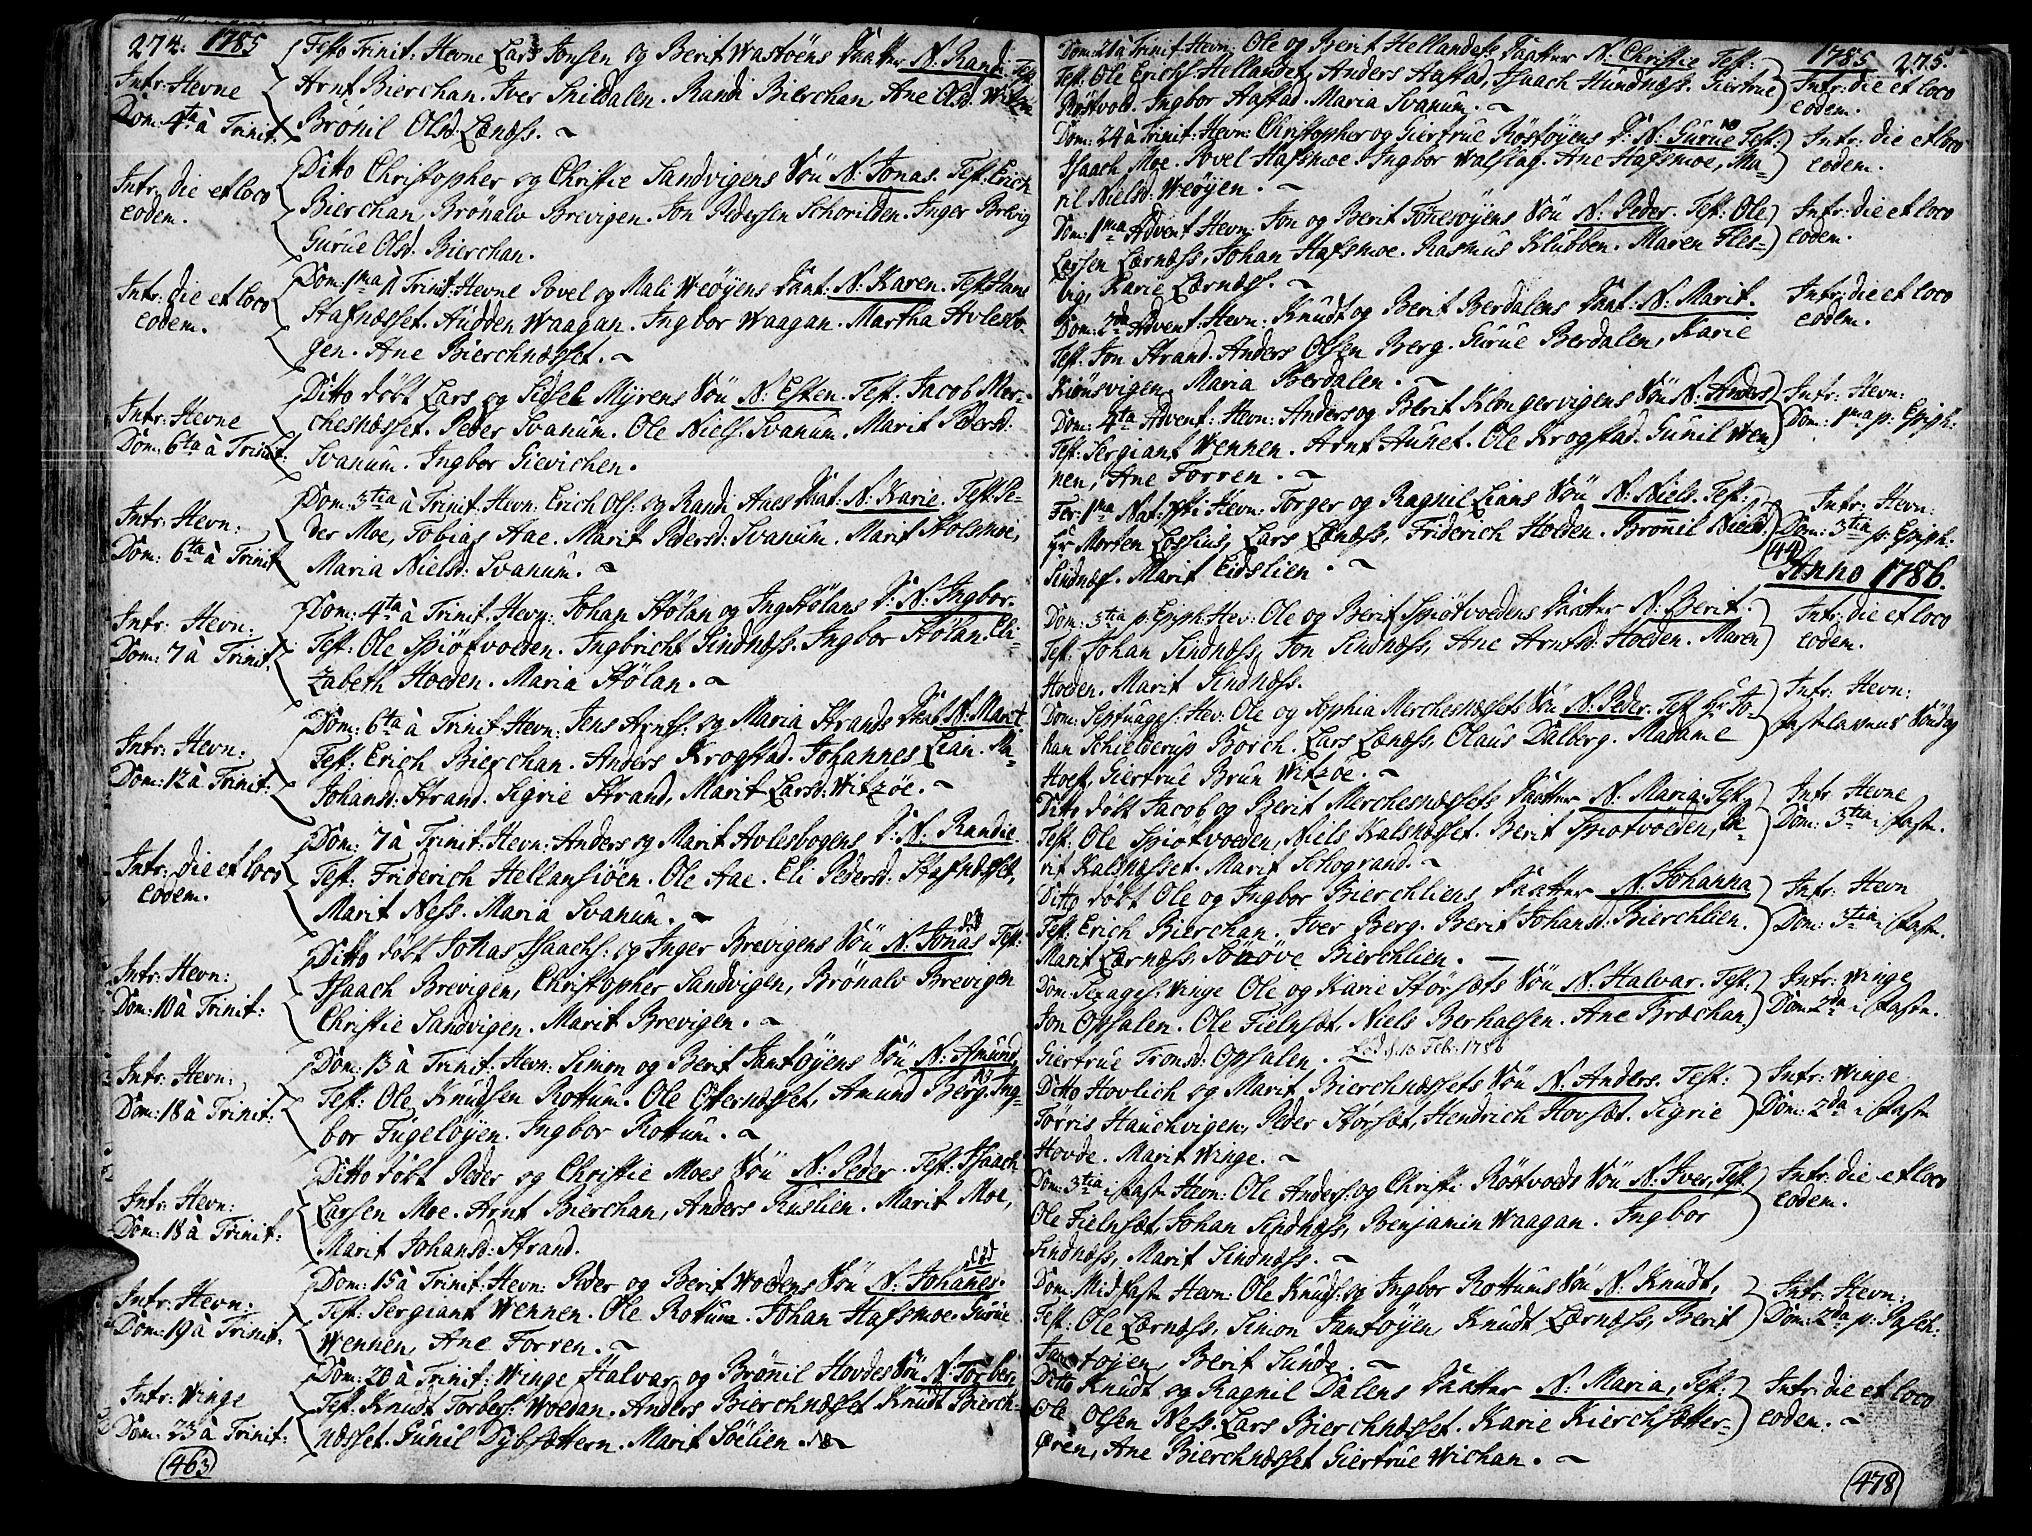 274. 1785
Festo Trinit: Hevne Lars Jonsen og Berit Wastøens Datter N. Randi. Test:
Intr: Hevne
Dom: 4ta à Trinit:
Arnt Bierchan. Iver Snildalen. Randi Bierchan, Ane Olsd:
Brønil Olsd: Læness.
Intr: die et loco
eodem.
Ditto Christopher og Christie Sandvigens Søn N. Jonas. Test: Erich
Bierchan, Brønalv Brevigen. Jon Pedersen Inger Brevig
Gurue Olsd. Bierchan.
Intr: die et loco
eodem.
Dom: 1ma à Trinit: Hevne Povel og Mali Weøyens Dat: N. Karen. Test: Hans
Stafnæsset. Audden Waagan. Ingbor Waagan. Martha Avlesbo-
gen. Ane Bierchnæsset.
Intr: Hevne
Dom: 6ta à Trinit:
Ditto døbt Lars og Sidsel Myrens Søn N: Esten. Test: Jacob Mer-
chesnæsset. Peder Svanum. Ole Niels: Svanum. Marit Pedersd:
Svanum. Ingbor Gievichen.
Intr: Hevn:
Dom: 6ta à Trinit
Dom: 3tia à Trinit: Hevn: Erich Ols: og Randi Aaes Dat: N: Karie. Test: Pe-
der Moe, Tobias Aae. Marit Pedersd: Svanum. Marit Holsmoe,
Maria Nielsd: Svanum.
Intr: Hevn:
Dom: 7 à Trinit.
Dom: 4ta à Trinit. Hevn: Johan Stølan og Ing: Stølans D: N. Ingbor.
Test: Ole Spiøtvoeden. Ingbricht Sindnæss. Ingbor Stølan. Eli-
zabeth Hoeden. Maria Stølan.
Intr: Hevn:
Dom: 12 à Trinit:
Dom: 6ta à Trinit: Hevn: Jens Arnts: og Maria Strands Dat: N: Marit
Test: Erich Bierchan. Anders Krogstad. Johannes Lian. Ma-
Johansd: Strand. Sigrie Strand, Marit Larsd: Witzøe.
Intr: die et loco
eodem.
Dom: 7 à Trinit: Hevn: Anders og Marit Avlesbogens D: N. Randie
Test: Friderich Hellansiøen. Ole Aae. Eli Pedersd: Stafnæsset,
Marit Ness. Maria Svanum.
Intr: Hevn:
Dom: 10 à Trinit:
Ditto døbt Johas Isaachs: og Inger Brevigens Søn N. Jonas Test:
Isaach Brevigen, Christopher Sandvigen, Brønalv Brevigen
Christie Sandvigen. Marit Brevigen.
Intr: Hevn:
Dom: 18 à Trinit:
Dom: 13 à Trinit: Hevn: Simon og Berit Jamtøyens Søn N. Amund,
Test: Ole Knudsen Rottum. Ole Otternæsset, Amund Berg. Ing-
bor Fugeløyen. Ingbor Rottum.
Intr: Hevn:
Dom: 18 à Trinit:
Ditto døbt Peder og Christie Moes Søn N: Peder. Test: Isaach
Larsen Moe. Arnt Bierchan, Anders Ruslien. Marit Moe,
Marit Johansd: Strand.
Intr: Hevn:
Dom: 19 à Trinit:
Dom: 15 à Trinit: Hevn: Peder og Berit Woedens Søn N. Johanes.
Test: Sergiant Wennen. Ole Rottum. Johan Hafsmoe. Gurue
Wennen, Ane Forren.
Intr: Winge
Dom: 23 à Trinit:
Dom: 20 à Trinit: Winge Halvar og Brønnil Hovdes Søn N. Torber,
Test: Knudt Torbers: Woedan. Anders Bierchnæsset Knudt Bierch-
næsset. Gunil Dybsættern. Marit Søelien.
(463)
1785 275.
Dom: 21 à Trinit: Hevn: Ole og Berit Hellandets Datter N: Christie Test:
Test: Ole Erichs: Hellandet, Anders Aastad, Isaach Hundnæss. Giertrue
Røstvold. Ingbor Aastad. Maria Svanum.
Intr: die et loco
eodem.
Dom: 24 à Trinit: Hevn: Christopher og Giertrue Røstøyens D: N: Gurue Test:
Isaach Moe. Povel Hafsmoe. Ingbor Walslag. Ane Hafsmoe, Ma-
ril Nielsd: Weøyen.
Intr: die et loco
eodem.
Dom: 1ma Advent Hevn: Jon og Berit Tønesøyens Søn N: Peder. Test: Ole
Larsen Lærnæss, Johan Hafsmoe. Rasmus Klubben. Maren Fles-
vig, Karie Lærnæs.
Intr: die et loco
eodem.
Dom: 2da Advent: Hevn: Knudt og Berit Berdalens Dat: N. Marit.
Test: Jon Strand. Anders Olsen Berg. Gurue Berdalen, Karie
Kiønsvigen, Maria Berdalen.
Intr: die et loco
eodem.
Dom: 4ta Advent: Hevn: Anders og Berit Klongervigens Søn N. Anders
Test: Sergiant Wennen. Arnt Aunet. Ole Krogstad. Gunil Wen-
nen, Ane Forren.
Intr: Hevn:
Dom: 1ma p: Epiph:
Fer: 1ma Nat: Xsti Hevn: Torger og Ragnil Lians Søn N. Niels. Test:
Hr Morten Lossius, Lars Lænæss, Friderich Hoeden. Brønnil Nielsd
Sindnæs. Marit Eidslien.
Intr: Hevn:
Dom: 3tia p: Epiph.
(44)
Anno 1786.
Dom: 3tia p. Epiph. Hev: Ole og Berit Spiøtvoedens Datter N. Berit.
Test: Johan Sindnæss, Jon Sindnæss, Ane Arntsd: Hoeden. Maren
Hoeden. Marit Sindnæss.
Intr: die et loco
eodem.
Dom: Septuages: Hev: Ole og Sophia Merchesnæssets Søn N. Peder. Test Hr Jo-
han Schielderup Borch. Lars Lænæss, Olaus Dalberg. Madame
Hoest, Giertrue Brun Witzøe.
Intr: Hevn:
fastelavns Søndag
Ditto døbt Jacob og Berit Merchesnæssets Datter N. Maria. Test:
Test: Ole Spiotvoeden, Niels Kalsnæsset. Berit Spiotvoeden, Be-
rit Kalsnæsset. Marit Schogrand.
Intr: Hevne
Dom: 3tia i fastn.
Ditto døbt Ole og Ingbor Bierchliens Datter N. Johanna
Test: Erich Bierchan. Iver Berg. Berit Johansd: Bierchlien.
Marit Lærnæss Sønøve Bierchlien.
Intr: Hevn
Dom: 3tia i fastn.
Dom: Sexages: Winge Ole og Karie Storsæts Søn N. Halvar. Test.
Jon Opsalen. Ole Fielnset, Niels Berhaelsen. Ane Bræchan,
Giertrue Tronsd: Opsalen. Fød d. 13 Feb: 1786
Intr: Winge
Dom: 2da i fastn.
Ditto Hovlich og Marit Bierchnæssets Søn N. Anders. Test:
Tørris Hauchvigen, Peder Storset, Hendrich Hovset. Sigrie
Hovde. Marit Winge.
Intr: Winge
Dom: 2da i fastn
Dom: 3tia i fastn Hevn: Ole Anders: og Christi Røstvoeds Søn N. Iver, Test
Ole Fielnset, Johan Sindnæss, Benjamin Waagan. Ingbor
Sindnæss, Marit Sindnæss.
Intr: die et loco
eodem.
Dom: Midfaste Hevn: Ole Knuds: og Ingbor Rottums Søn N. Knudt,
Test: Ole Lærnæss, Simon Jamtøyen, Knudt Lærnæss, Berit
Jamtøyen, Berit Sunde.
Intr: Hevn:
Dom: 2da p: Pasch:
Ditto Knudt og Ragnil Dalens Datter N: Maria, Test:
Ole Olsen Ness. Lars Bierchnæsset. Karie Kierchsætter-
Øren, Ane Bierchnæsset Giertrue Wichan.
Intr: die et loco
eodem.
(478)